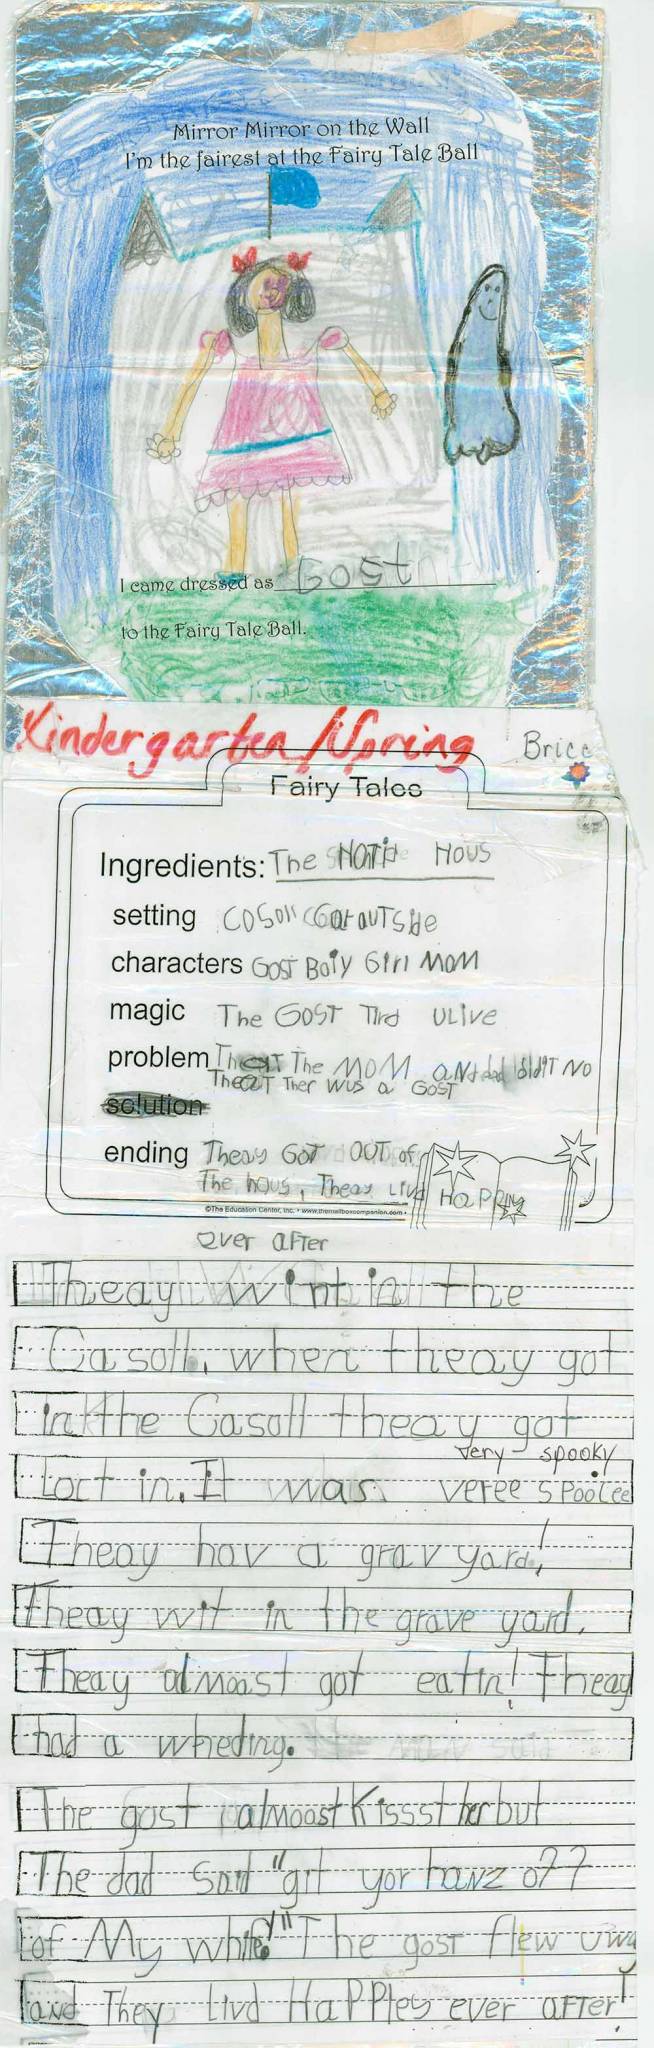 Mirror Mirror on the Wall
I'm the fairest at the Fairy Tale Ball
I came dressed as Gost
to the Fairy Tale Ball.
Kindergarten/Spring Brice
Fairy Tales
Ingredients: The HOTid HOUS
setting COSOll outside
characters GOST Boiy Girl MOM
magic The GOST Tird ULIVE
problem TheaT The MOM aNd dad didiT NO
TheaT Ther wus a GOST
solution
ending Theay GOT OUT of
The hous, Theay Livd HaPPley
©The Education Center, Inc. • www.themailboxcompanion.com •
ever after
Theay wint in the
Casoll. when theay got
in the Casoll theay got
very spooky
Loct in. It was veree spoolee
Theay hav a grav yard!
Theay wit in the grave yard.
Theay almoast got eatin! Theay
had a wheding.
The gost almoost Kissst her but
The dad Said "git yor hanz off
of My while!" The gost flew uwy
and They Livd HaPPley ever after!